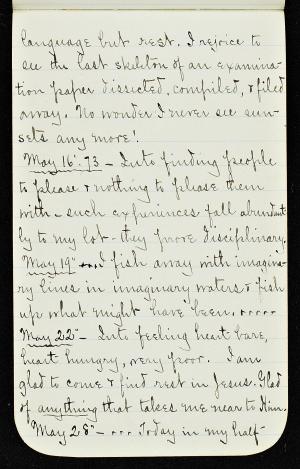 language but rest. I rejoice to
see the last skeleton of an examina-
tion paper dissected, compiled, & filed
away. No wonder I never see sun-
sets any more!
May 16. 73 - Into finding people
to please & nothing to please them
with - such experiences fall abundant-
ly to my lot - they prove disciplinary.
May 19" ... I fish away with imagina-
ry lines in imaginary waters & fish
up what might have been. .....
May 22" - Into feeling heart bare,
heart hungry, very poor. I am
glad to come & find rest in Jesus. Glad
of anything that takes me near to Him.
May 28" - ... Today in my half-